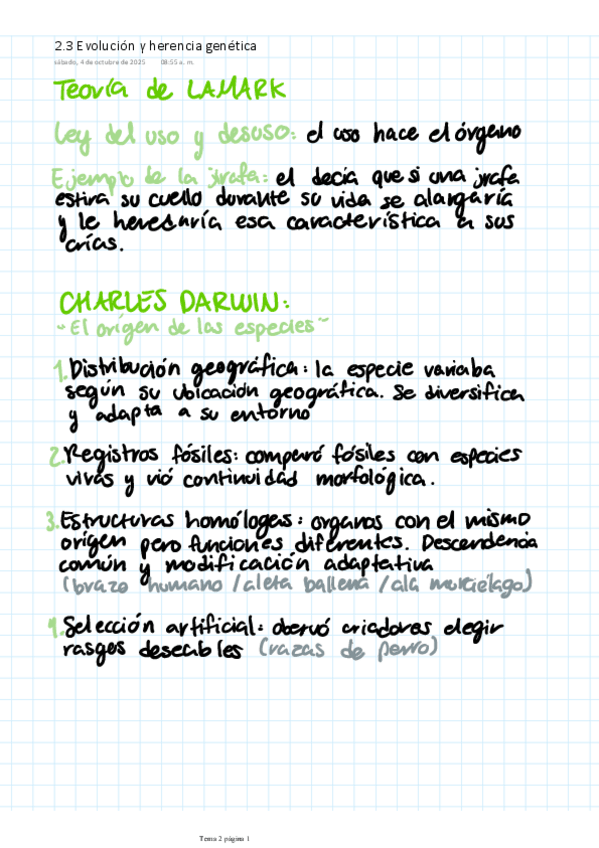 2.3 Evolución y herencia genética
sábado, 4 de octubre de 2025 08:55 a. m.
Teoría de LAMARK
Ley del uso y desuso: el uso hace el órgano
Ejemplo de la jirafa: el decía que si una jirafa
estira su cuello durante su vida se alargaría
y le heredaría esa característica a sus
crías.
CHARLES DARWIN:
~El origen de las especies~
1. Distribución geográfica: la especie variaba
según su ubicación geográfica. Se diversifica
y adapta a su entorno
2. Registros fósiles: comparó fósiles con especies
vivas y vió continuidad morfológica.
3. Estructuras homólogas: organos con el mismo
origen pero funciones diferentes. Descendencia
común y modificación adaptativa
(brazo humano / aleta ballena / ala murciélago)
4. Selección artificial: observó criadores elegir
rasgos deseables (razas de perro)
Tema 2 página 1